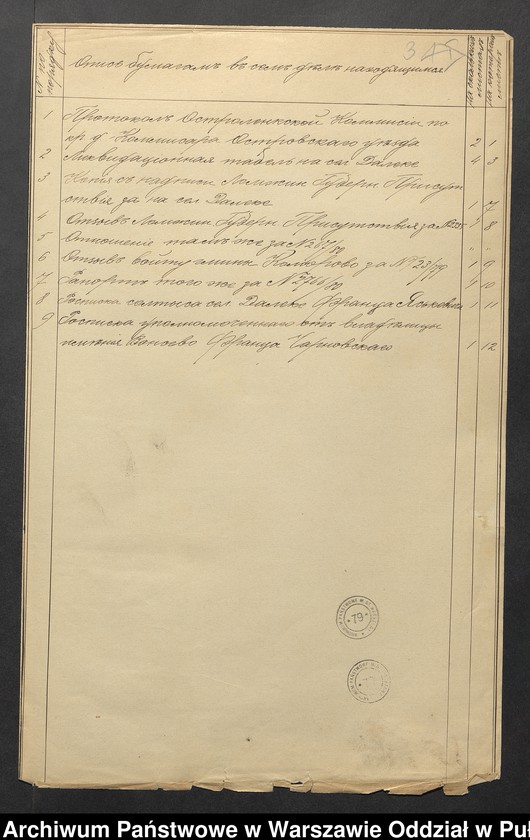 № по порядку
Опись бумагамъ въ семъ дѣлѣ находящимся
3
на сколькихъ листахъ
на которомъ листѣ
1 Протоколъ Остроленкской Коммисіи по
кр. д. Коммисара Островскаго уѣзда 2 1
2 Ликвидаціонная табель на сел. Далеке 4 3
3 Копія съ надписи Ломжин. Губерн. Присут
ствія за на сел. Далеке 1 7
4 Отзывъ Ломжин. Губерн. Присутствія за 1 8
5 Отношеніе тамъ же за № " "
6 Отзывъ войту гмины Коморово за № 23/79 1 9
7 Рапортъ того же за № 1 10
8 Росписка солтыса сел. Далеке Франца 1 11
9 Росписка уполномоченнаго отъ владѣлицы
имѣнія Франца Чарновскаго 1 12
79
Archiwum Państwowe w Warszawie Oddział w Pu